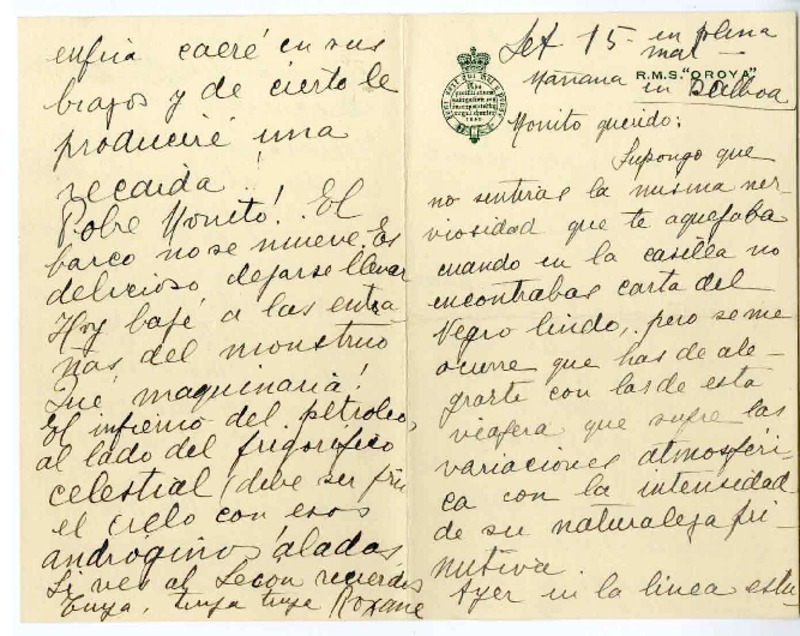 Set 15 - en plena
mar -
R.M.S. "OROYA"
Mañana en Balboa
Monito querido:
Supongo que
no sentiras la misma ner-
viosidad que te aquejaba
cuando en la casilla no
encontrabas carta del
Negro lindo, pero se me
ocurre que has de ale-
grarte con las de esta
viajera que sufre las
variaciones atmosféri-
ca con la intensidad
de su naturaleza pri-
mitiva.
Ayer en la linea estu-
enfria caeré en sus
brazos y de cierto le
produciré una
recaida!
Pobre Monito! El
barco no se mueve. Es
delicioso dejarse llevar
Hoy bajé a las entra
ñas del monstruo
Qué maquinaria!
El infierno del petroleo,
al lado del frigorífico
celestial (debe ser frio
el cielo con esos
andróginos alados
Si ves al recuerdos
Tuya, tuya tuya Roxane